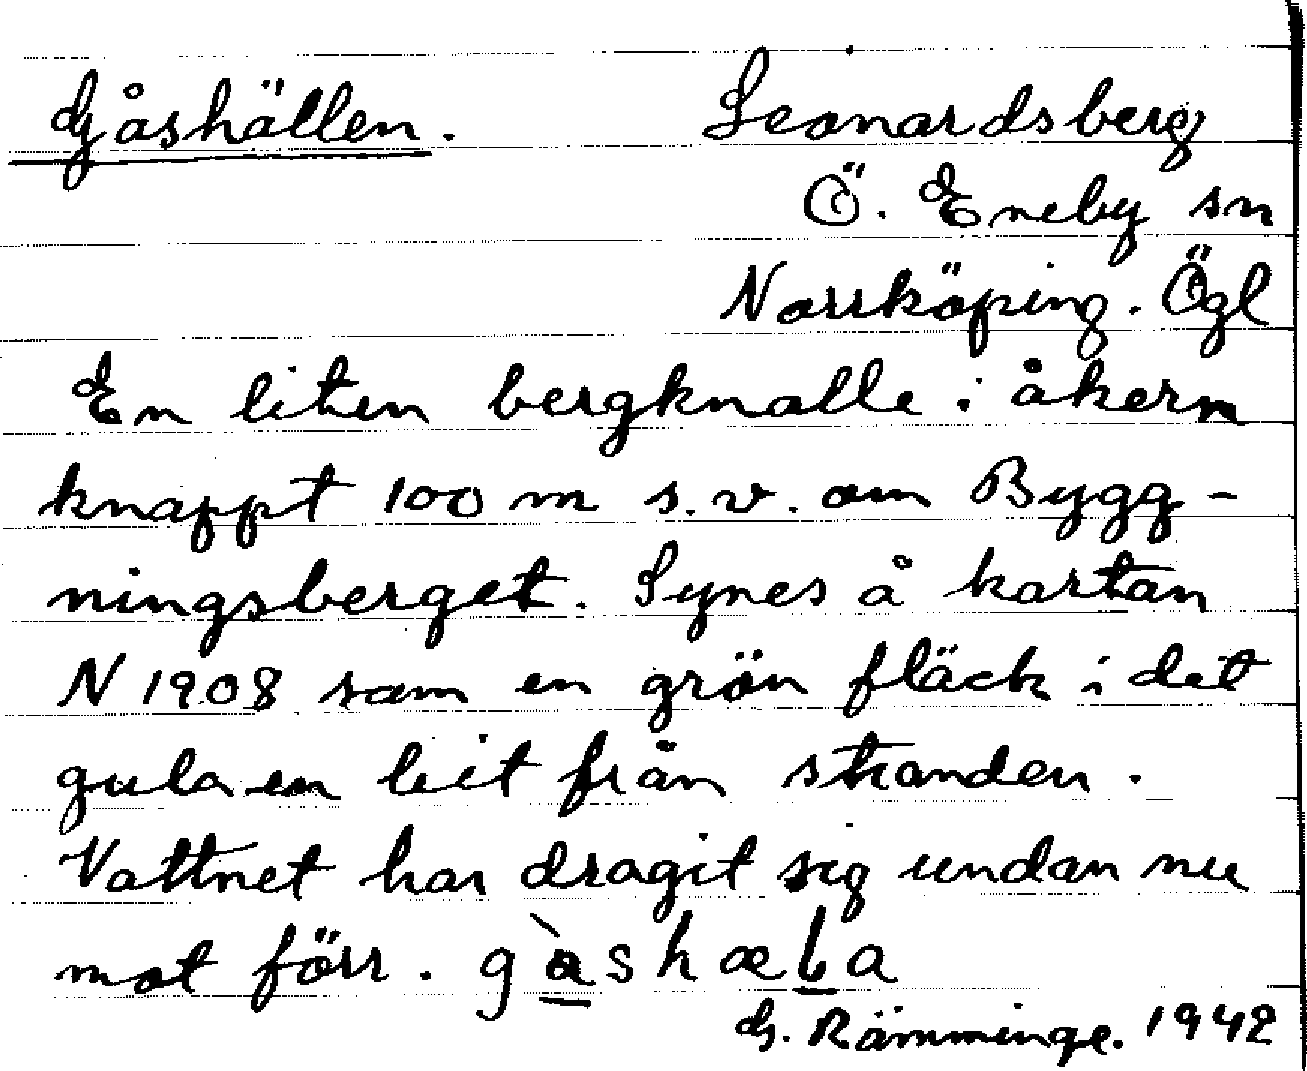 Gåshällen. Leonardsberg
Ö. Eneby sn
Norrköping. Ögl
En liten bergknalle i åkern
knappt 100 m s.v. om Bygg-
ningsberget. Synes å kartan
N 1908 som en grön fläck i det
gula en bit från stranden.
Vattnet har dragit sig undan nu
mot förr.
G. Rämminge. 1942